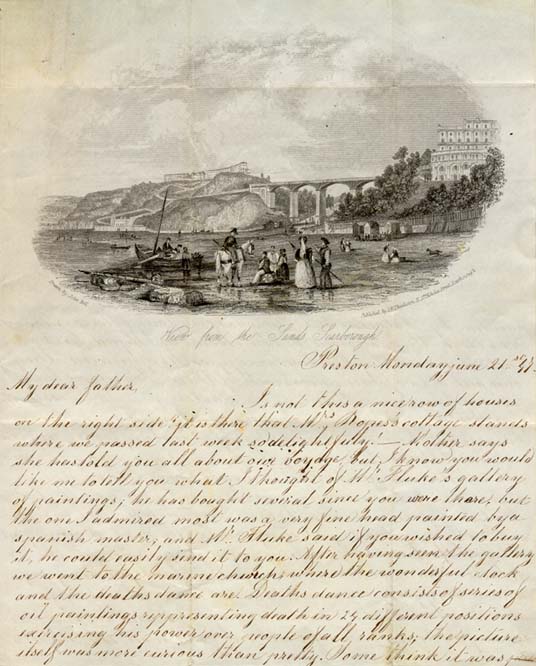 View from the Sands Scarborough
Preston Monday june 21.st
My dear father,
Is not this a nice row of houses
on the right side, it is there that Mrs cottage stands
where we passed last week so delightfully. — Mother says
she has told you all about our but I know you would
like me to tell you what I thought of Mr Fluke's gallery
of paintings; he has bought several since you were there; but
the one I admired most was a very fine head painted by a
spanish master, and Mr. Fluke said if you wished to buy
it, he could easily send it to you. After having seen the gallery
we went to the marine church, where the wonderful clock
and the deaths dance are. Deaths dance consists of series of
oil paintings representing death in different positions
exercising his power over people of all ranks; the picture
itself was more curious than pretty. Some think it was